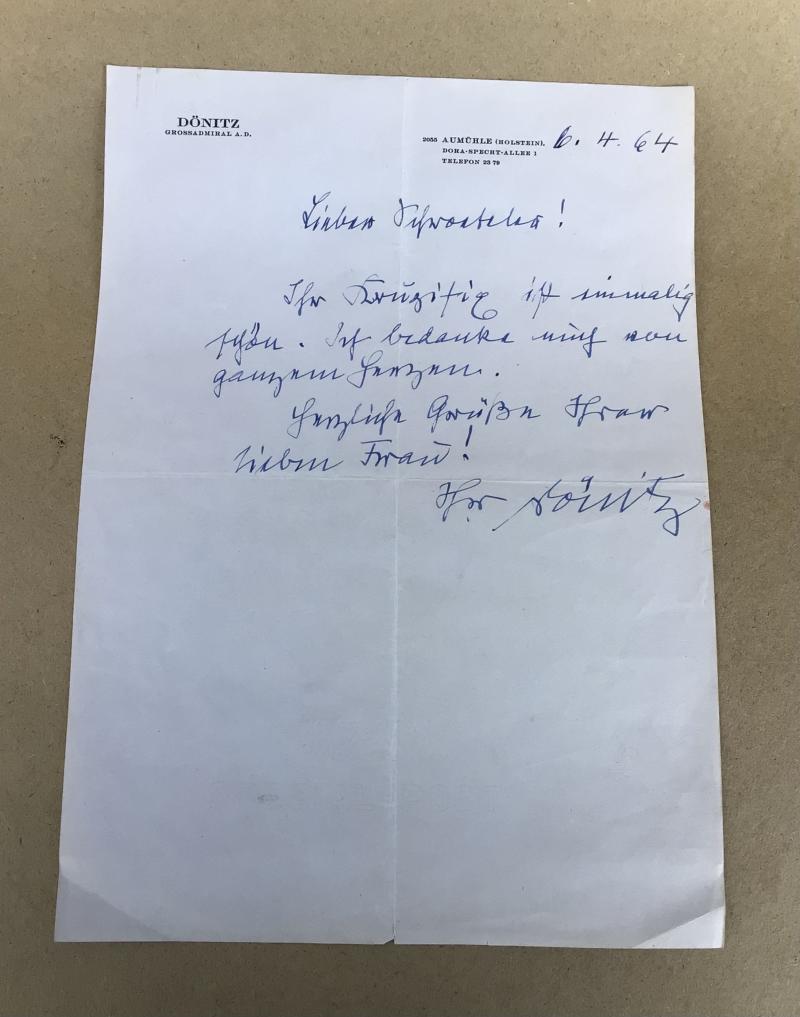 DÖNITZ
GROSSADMIRAL A.D.
2055 AUMÜHLE (HOLSTEIN), 6. 4. 64
DORA-SPECHT-ALLEE 1
TELEFON 23 79
Lieber Schroeteler!
Ihr Kruzifix ist einmalig
schön. Ich bedanke mich von
ganzem Herzen.
Herzliche Grüße Ihrer
lieben Frau!
Ihr Dönitz